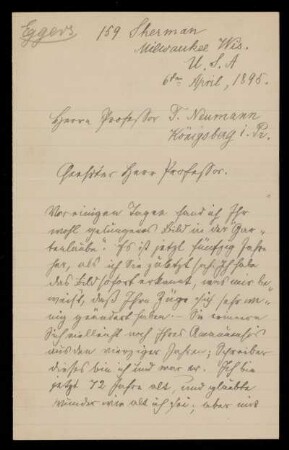 Eggers
159 Sherman
Milwaukee Wis.
U. S. A
6ten April, 1895.
Herrn Professor F. Neumann
Königsberg i. Pr.
Geehrter Herr Professor.
Vor einigen Tagen fand ich Ihr
wohl gelungenes Bild in der "Gar-
tenlaube". Es ist jetzt fünfzig Jahre
her, als ich Sie zuletzt sah. Ich habe
das Bild sofort erkannt, was mir be-
weist, daß Ihre Züge sich sehr we-
nig geändert haben. Sie erinnern
sich vielleicht noch Ihres
aus den vierziger Jahren; Schreiber
dieses bin ich und war er. Ich bin
jetzt 72 Jahre alt, und glaubte
wunder wie alt ich sei; aber mit